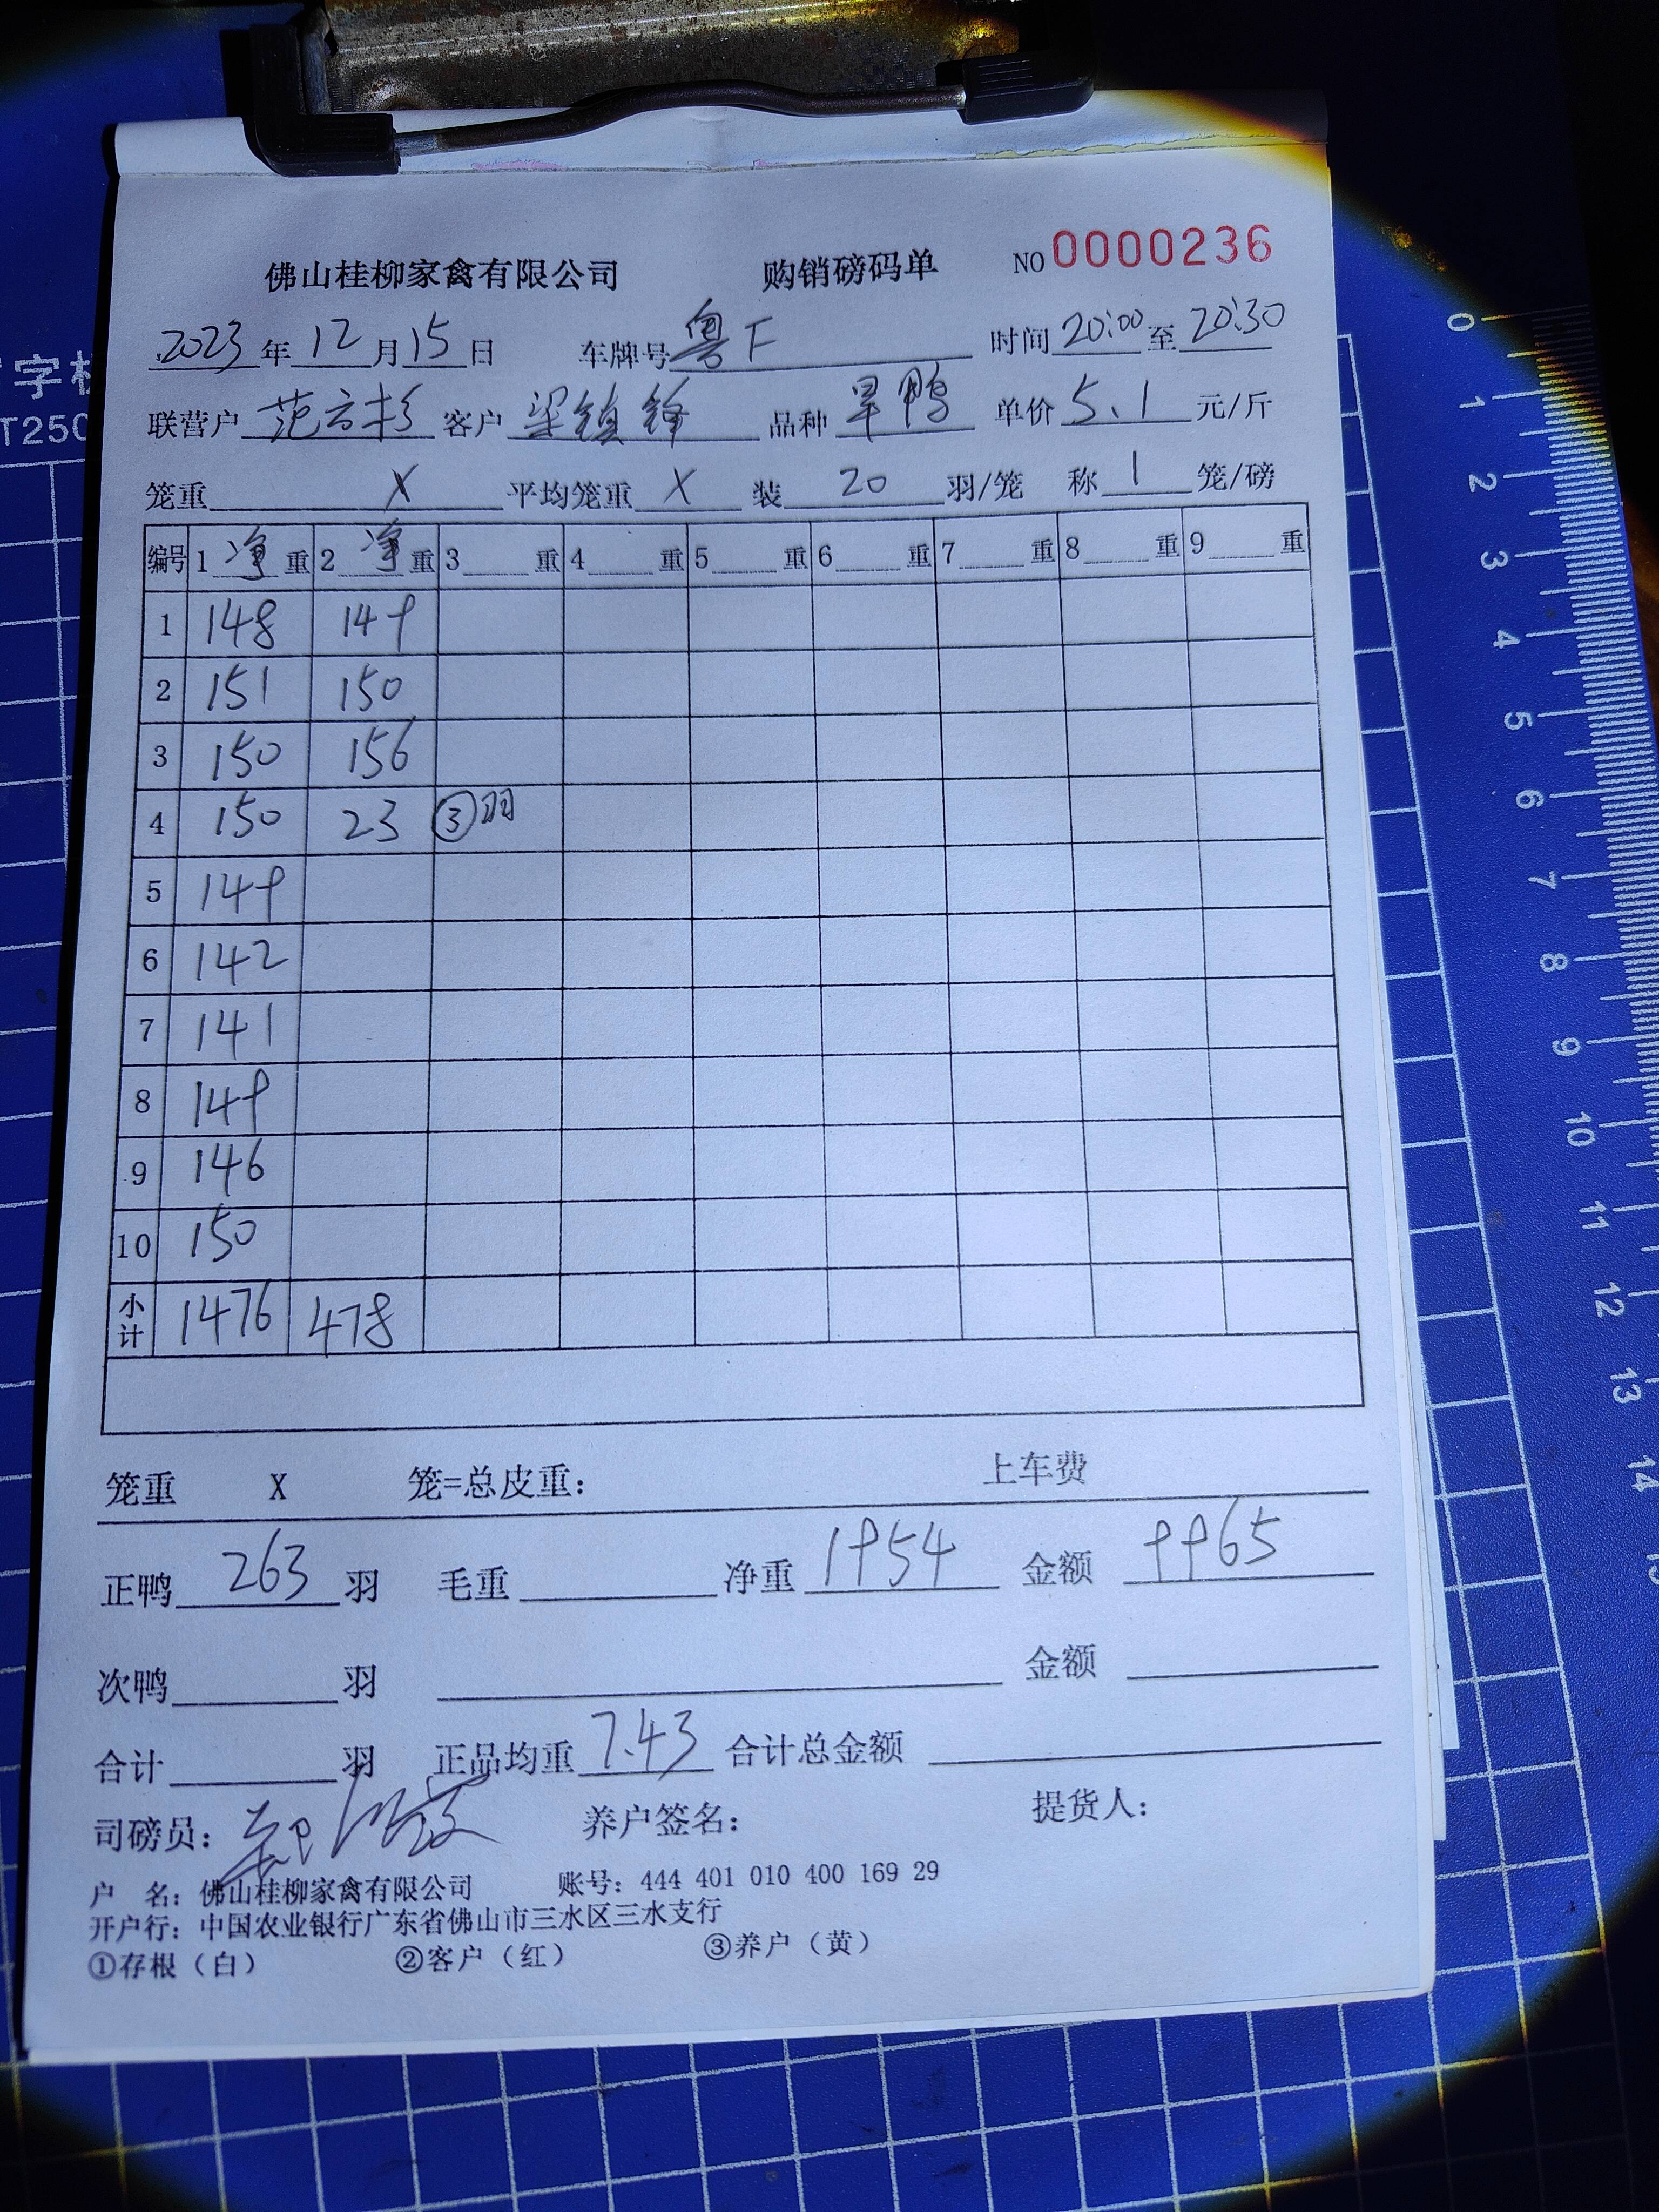 佛山桂柳家禽有限公司 购销磅码单 NO 0000236
2023年12月15日 车牌号 粤F 时间 20:00 至 20:30
联营户 范云杉 客户 梁镇锋 品种 旱鸭 单价 5.1 元/斤
笼重 X 平均笼重 X 装 20 羽/笼 称 1 笼/磅
编号 1 净 重 2 净 重 3 重 4 重 5 重 6 重 7 重 8 重 9 重
1 148 149
2 151 150
3 150 156
4 150 23 ③羽
5 149
6 142
7 141
8 149
9 146
10 150
小计 1476 478
笼重 X 笼=总皮重: 上车费
正鸭 263 羽 毛重 净重 1954 金额 9965
次鸭 羽 金额
合计 羽 正品均重 7.43 合计总金额
司磅员: 养户签名: 提货人:
户 名: 佛山桂柳家禽有限公司 账号: 444 401 010 400 169 29
开户行: 中国农业银行广东省佛山市三水区三水支行
①存根(白) ②客户(红) ③养户(黄)
字
T250
0
1
2
3
4
5
6
7
8
9
10
11
12
13
14